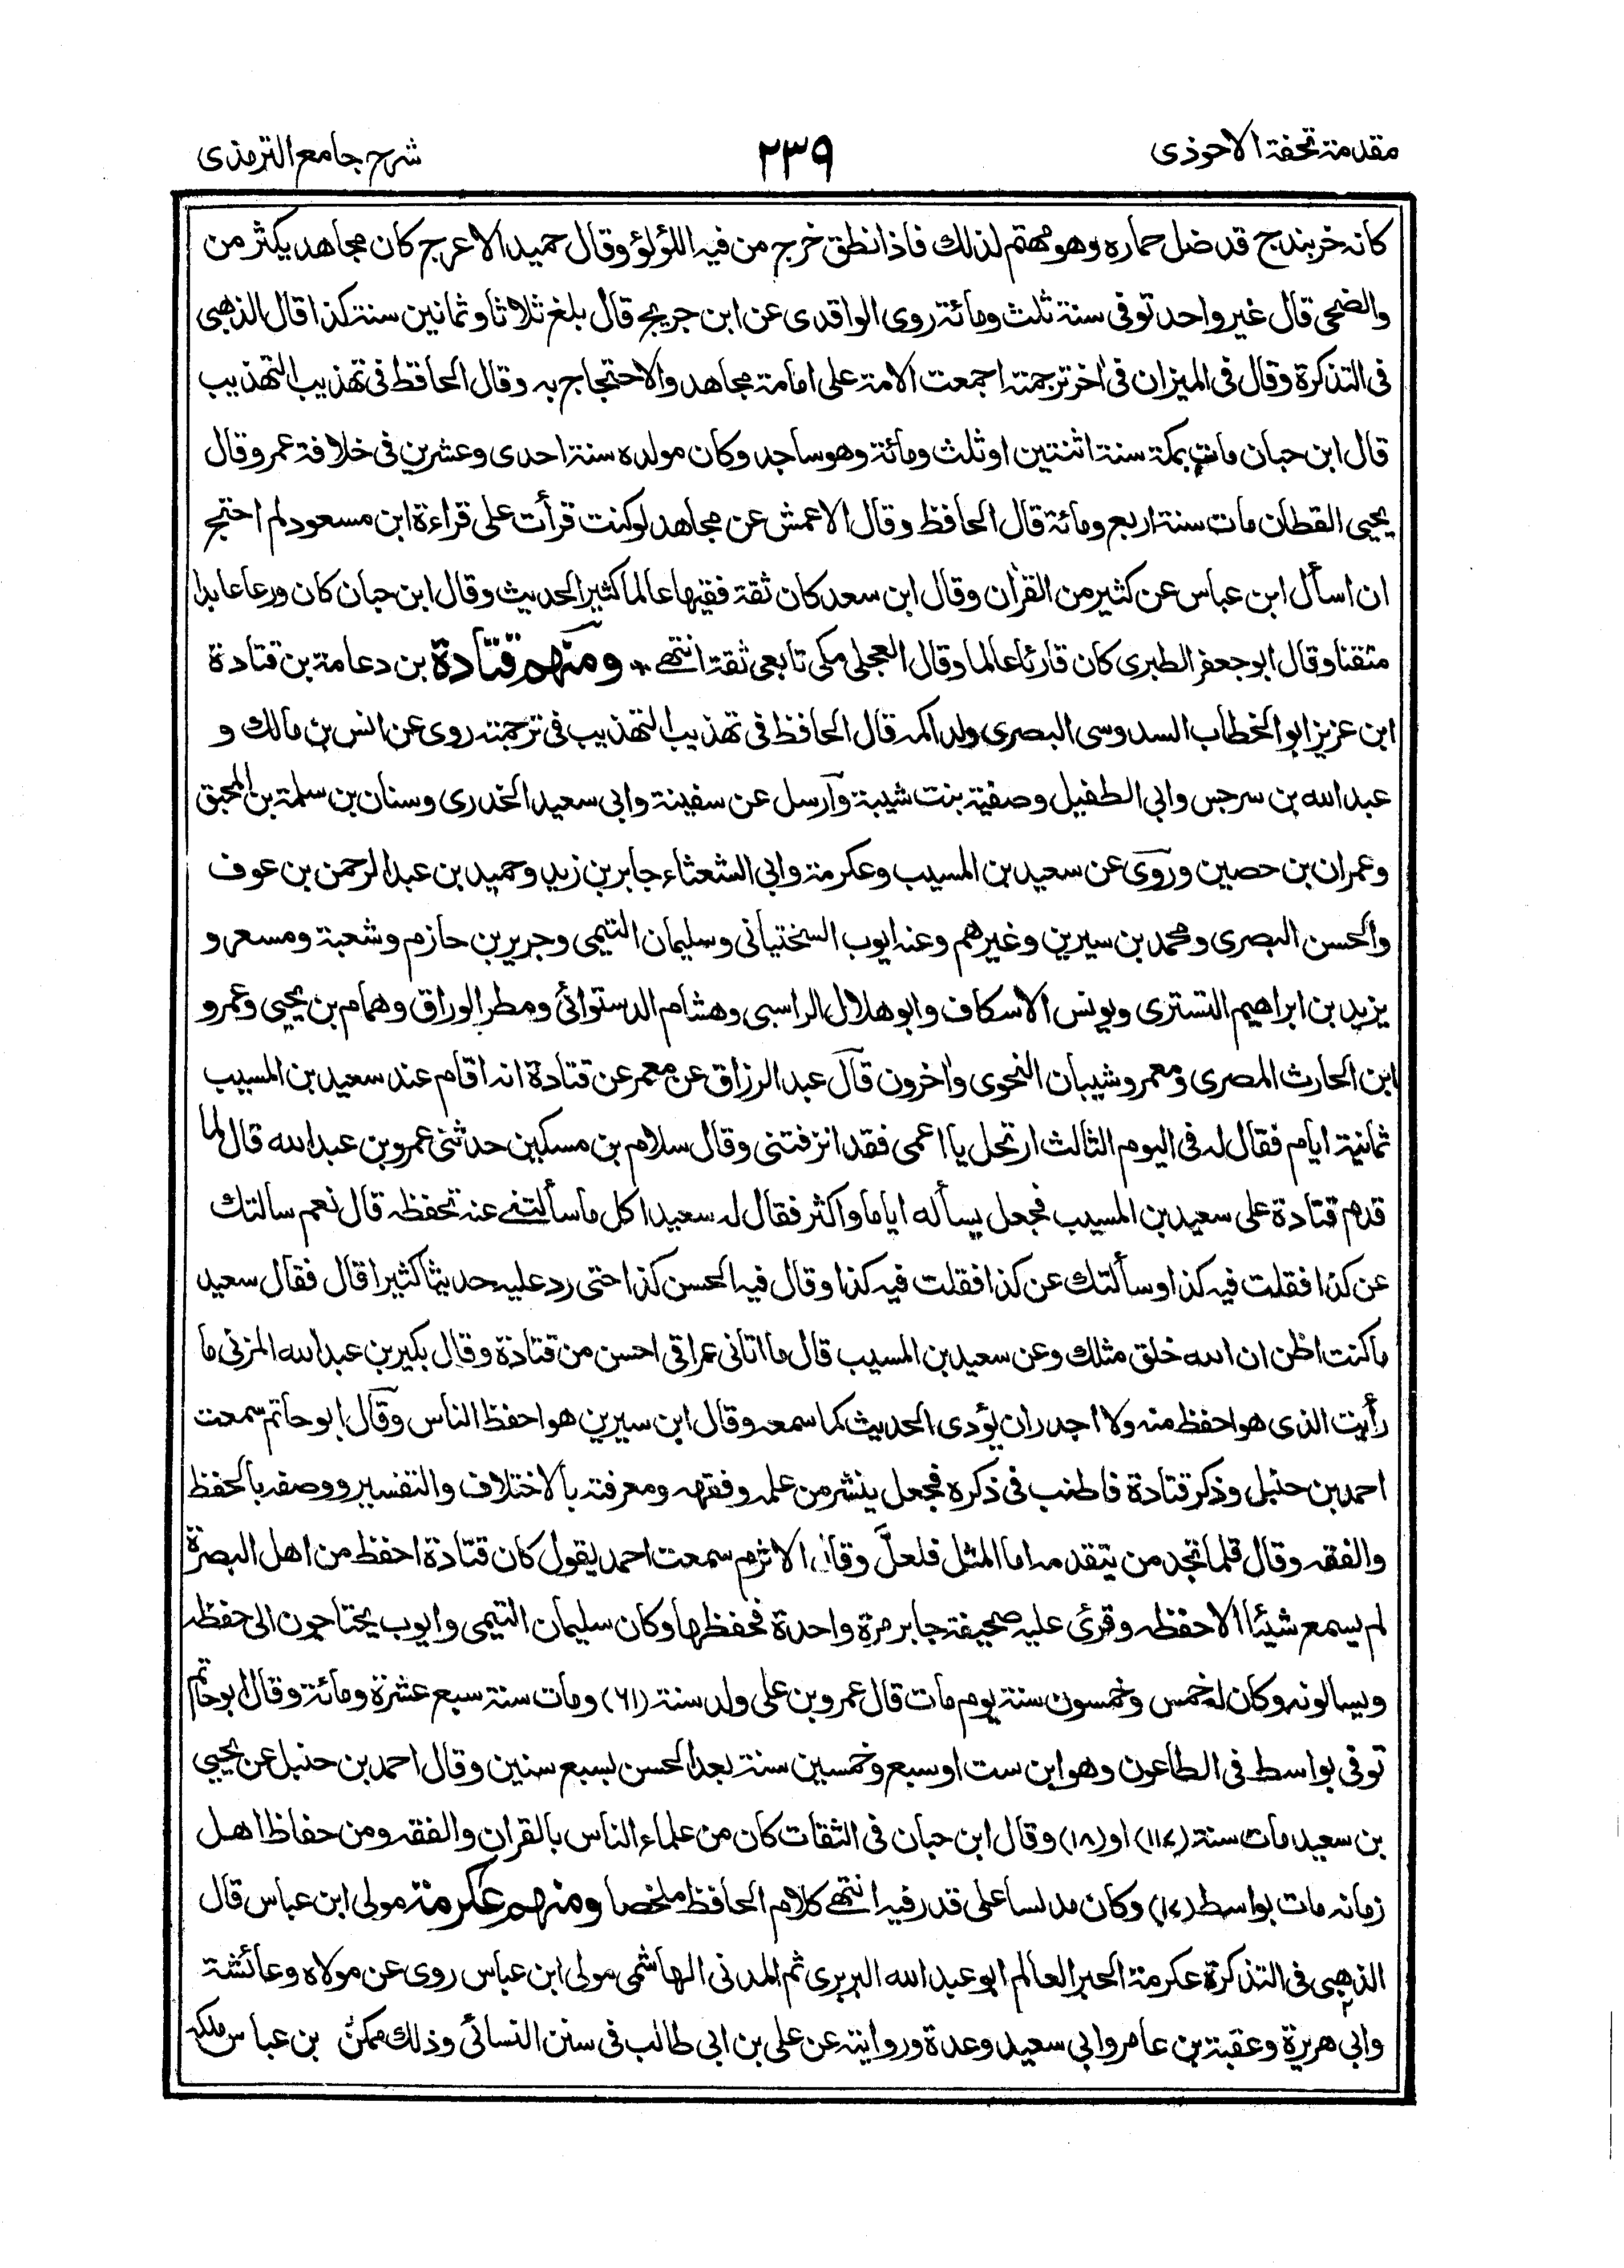 مقدمة تحفة الاحوذى
٢٣٩
شرح جامع الترمذى
كانه خربندج قد ضل حماره وهو مهتم لذلك فاذا نطق خرج من فيه اللؤلؤ وقال حميد الاعرج كان مجاهد يكثر من
والضحى قال غير واحد توفى سنة ثلث ومائة روى الواقدى عن ابن جريج قال بلغ ثلاثا وثمانين سنة كذا قال الذهبى
فى التذكرة وقال فى الميزان فى اخر ترجمته اجمعت الامة على امامة مجاهد والاحتجاج به وقال الحافظ فى تهذيب التهذيب
قال ابن حبان مات بمكة سنة اثنتين او ثلث ومائة وهو ساجد وكان مولده سنة احدى وعشرين فى خلافة عمر وقال
يحيى القطان مات سنة اربع ومائة قال الحافظ وقال الاعمش عن مجاهد لو كنت قرأت على قراءة ابن مسعود لم احتج
ان اسأل ابن عباس عن كثير من القرأن وقال ابن سعد كان ثقة فقيها عالما كثير الحديث وقال ابن حبان كان ورعا عابدا
متقنا وقال ابو جعفر الطبرى كان قارئا عالما وقال العجلى مكى تابعى ثقة انتهى + ومنهم قتادة بن دعامة بن قتادة
ابن عزيز ابو الخطاب السدوسى البصرى ولد اكمه قال الحافظ فى تهذيب التهذيب فى ترجمته روى عن انس بن مالك و
عبد الله بن سرجس وابى الطفيل وصفية بنت شيبة وآرسل عن سفينة وابى سعيد الخدرى وسنان بن سلمة بن المحبق
وعمران بن حصين وروى عن سعيد بن المسيب وعكرمة وابى الشعثاء جابر بن زيد وحميد بن عبد الرحمن بن عوف
والحسن البصرى ومحمد بن سيرين وغيرهم وعنه ايوب السختيانى وسليمان التيمى وجرير بن حازم وشعبة ومسعر و
يزيد بن ابراهيم التسترى ويونس الاسكاف وابو هلال الراسبى وهشام الدستوائى ومطر الوراق وهمام بن يحيى وعمرو
ابن الحارث المصرى ومعمر وشيبان النحوى واخرون قال عبد الرزاق عن معمر عن قتادة انه اقام عند سعيد بن المسيب
ثمانية ايام فقال له فى اليوم الثالث ارتحل يا اعمى فقد انزفتنى وقال سلام بن مسكين حدثنى عمرو بن عبد الله قال لما
قدم قتادة على سعيد بن المسيب فجعل يسأله اياما واكثر فقال له سعيد اكل ما سألتنى عنه تحفظه قال نعم سالتك
عن كذا فقلت فيه كذا وسألتك عن كذا فقلت فيه كذا وقال فيه الحسن كذا حتى رد عليه حديثا كثيرا قال فقال سعيد
ما كنت اظن ان الله خلق مثلك وعن سعيد بن المسيب قال ما اتانى عراقى احسن من قتادة وقال بكير بن عبد الله المزنى ما
رأيت الذى هو احفظ منه ولا اجدر ان يؤدى الحديث كما سمعه وقال ابن سيرين هو احفظ الناس وقال ابو حاتم سمعت
احمد بن حنبل وذكر قتادة فاطنب فى ذكره فجعل ينشر من علمه وفقهه ومعرفته بالاختلاف والتفسير ووصفه بالحفظ
والفقه وقال قلما تجد من يتقدمه اما المثل فلعل وقال الاثرم سمعت احمد يقول كان قتادة احفظ من اهل البصرة
لم يسمع شيئا الا حفظه وقرئ عليه صحيفة جابر مرة واحدة فحفظها وكان سليمان التيمى وايوب يحتاجون الى حفظه
ويسالونه وكان له خمس وخمسون سنة يوم مات قال عمرو بن على ولد سنة (٦١) ومات سنة سبع عشرة ومائة وقال ابو حاتم
توفى بواسط فى الطاعون وهو ابن ست او سبع وخمسين سنة بعد الحسن بسبع سنين وقال احمد بن حنبل عن يحيى
بن سعيد مات سنة (١١٧) او (١٨) وقال ابن حبان فى الثقات كان من علماء الناس بالقران والفقه ومن حفاظ اهل
زمانه مات بواسط (١٧) وكان مدلسا على قدر فيه انتهى كلام الحافظ ملخصا ومنهم عكرمة مولى ابن عباس قال
الذهبى فى التذكرة عكرمة الحبر العالم ابو عبد الله البربرى ثم المدنى الهاشمى مولى ابن عباس روى عن مولاه وعائشة
وابى هريرة وعقبة بن عامر وابى سعيد وعدة وروايته عن على بن ابى طالب فى سنن النسائى وذلك ممكن بن عباس ملكه